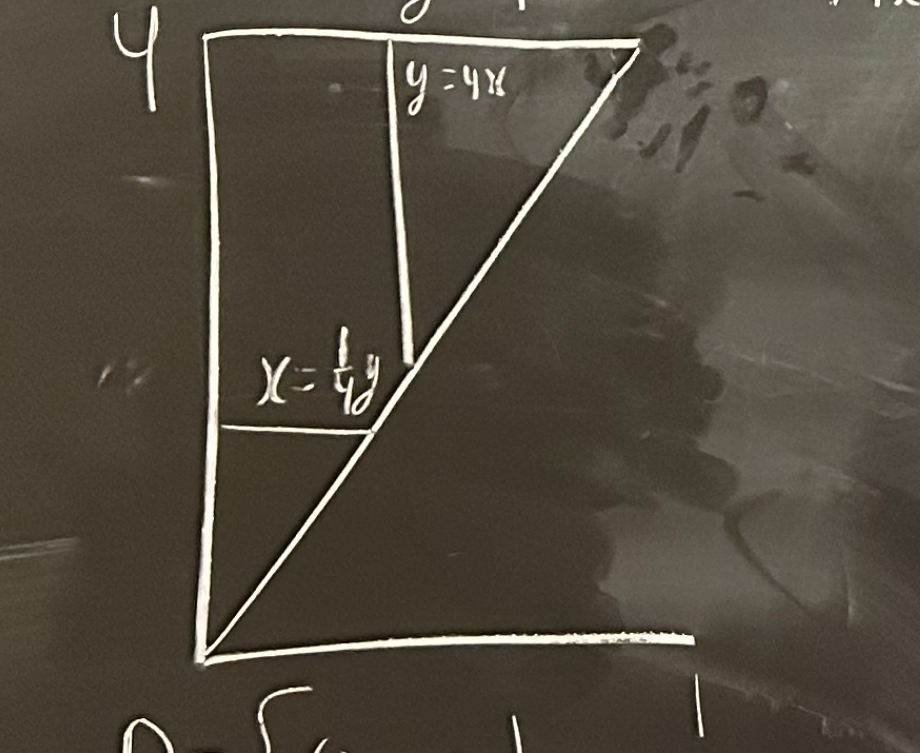 4
y = 4x
x = 1/4 y
1